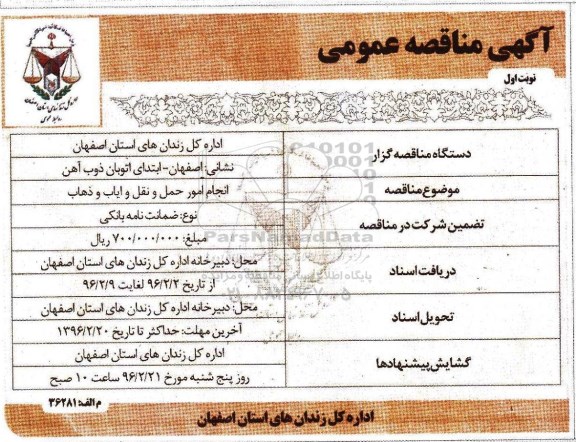 آگهی مناقصه عمومی
نوبت اول
دستگاه مناقصه گزار
اداره کل زندان های استان اصفهان
نشانی: اصفهان-ابتدای اتوبان ذوب آهن
موضوع مناقصه
انجام امور حمل و نقل و ایاب و ذهاب
تضمین شرکت در مناقصه
نوع: ضمانت نامه بانکی
مبلغ: ۷۰۰/۰۰۰/۰۰۰ ریال
دریافت اسناد
محل: دبیرخانه اداره کل زندان های استان اصفهان
از تاریخ ۹۶/۲/۲ لغایت ۹۶/۲/۹
تحویل اسناد
محل: دبیرخانه اداره کل زندان های استان اصفهان
آخرین مهلت: حداکثر تا تاریخ ۱۳۹۶/۲/۲۰
گشایش پیشنهادها
اداره کل زندان های استان اصفهان
روز پنج شنبه مورخ ۹۶/۲/۲۱ ساعت ۱۰ صبح
م الف: ۳۶۲۸۱
اداره کل زندان های استان اصفهان
ParsNamadData